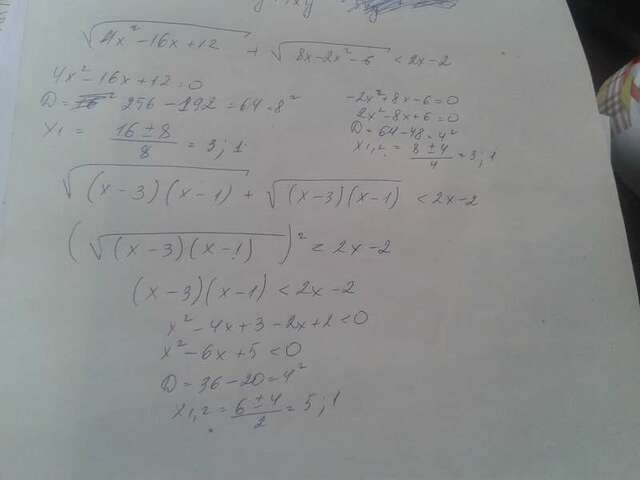 √(4x²-16x+12) + √(8x-2x²-6) < 2x-2
4x²-16x+12=0
D= 256-192=64=8²
x₁ = (16±8)/8 = 3; 1
-2x²+8x-6=0
2x²-8x+6=0
D=64-48=4²
x₁,₂ = (8±4)/4 = 3; 1
√((x-3)(x-1)) + √((x-3)(x-1)) < 2x-2
(√((x-3)(x-1)))² < 2x-2
(x-3)(x-1) < 2x-2
x²-4x+3-2x+2<0
x²-6x+5<0
D=36-20=4²
x₁,₂ = (6±4)/2 = 5; 1